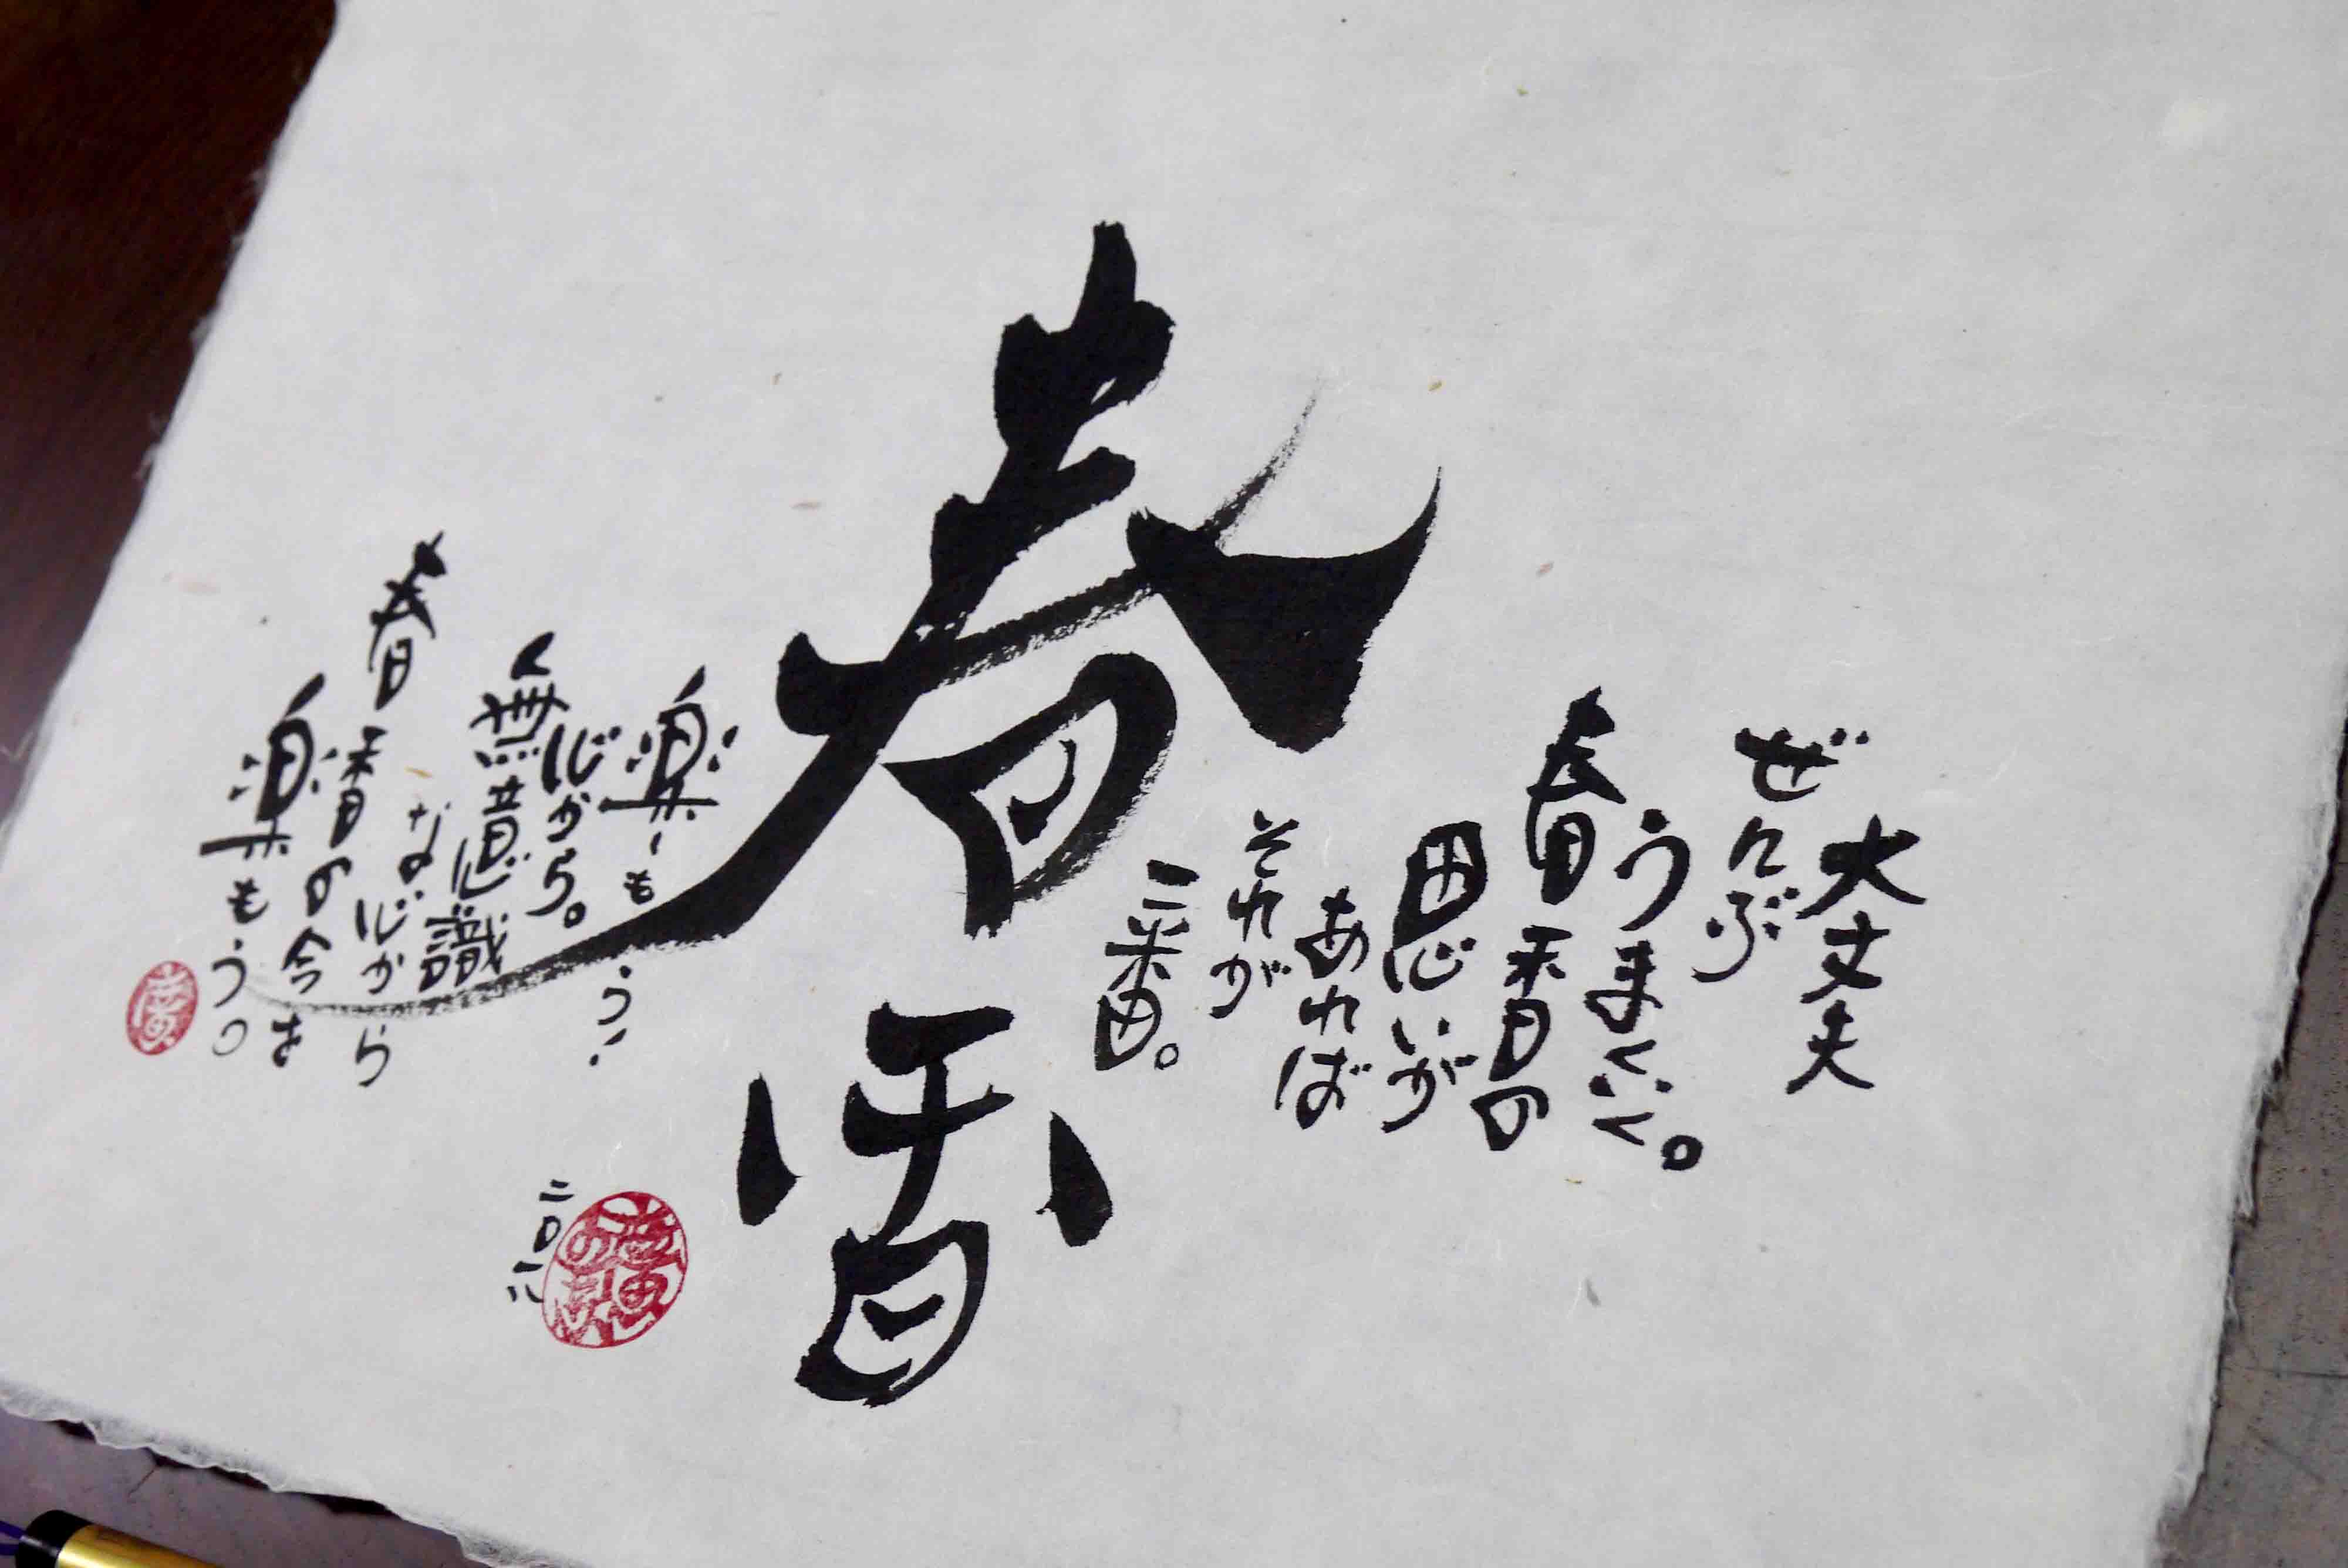 大丈夫
ぜんぶ
うまくいく。
春香の
思いが
あれば
それが
一番。
春香
楽しもう!
心から。
無意識
な心から
春香の今を
楽しもう。
二〇一八